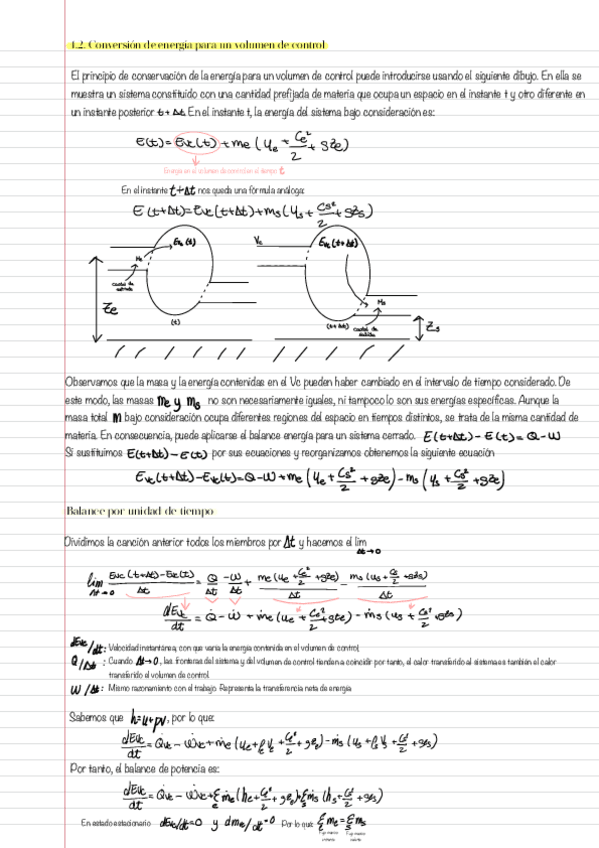 4.2. Conversión de energía para un volumen de control
El principio de conservación de la energía para un volumen de control puede introducirse usando el siguiente dibujo. En ella se
muestra un sistema constituido con una cantidad prefijada de materia que ocupa un espacio en el instante t y otro diferente en
un instante posterior t+Δt. En el instante t, la energía del sistema bajo consideración es:
E(t)=Evc(t)+me(ue+Ce²/2+gze)
Energía en el volumen de control en el tiempo t
En el instante t+Δt nos queda una fórmula análoga:
E(t+Δt)=Evc(t+Δt)+ms(us+Cs²/2+gzs)
Evc(t)
Vc
Evc(t+Δt)
Ms
Ze
(t)
(t+Δt)
Zs
Observamos que la masa y la energía contenidas en el Vc pueden haber cambiado en el intervalo de tiempo considerado. De
este modo, las masas me y ms no son necesariamente iguales, ni tampoco lo son sus energías específicas. Aunque la
masa total m bajo consideración ocupa diferentes regiones del espacio en tiempos distintos, se trata de la misma cantidad de
materia. En consecuencia, puede aplicarse el balance energía para un sistema cerrado. E(t+Δt)-E(t)=Q-W
Si sustituimos E(t+Δt)-E(t) por sus ecuaciones y reorganizamos obtenemos la siguiente ecuación
Evc(t+Δt)-Evc(t)=Q-W+me(ue+Ce²/2+gze)-ms(us+Cs²/2+gze)
Balance por unidad de tiempo
Dividimos la canción anterior todos los miembros por Δt y hacemos el lim Δt→0
lim Δt→0 Evc(t+Δt)-Evc(t)/Δt = Q/Δt -W/Δt + me(ue+Ce²/2+gze)/Δt - ms(us+Cs/2+gzs)/Δt
dEvc/dt = Q̇-Ẇ+ṁe(ue+Ce²/2+gze)-ṁs(us+Cs²/2+gzs)
dEvc/dt: Velocidad instantánea, con que varia la energía contenida en el volumen de control,
Q/Δt : Cuando Δt→0, las fronteras del sistema y del volumen de control tienden a coincidir por tanto, el calor transferido al sistema es también el calor
transferido el volumen de control.
W/Δt: Mismo razonamiento con el trabajo. Representa la transferencia neta de energía
Sabemos que h=u+pv, por lo que:
dEvc/dt = Q̇vc-Ẇvc+ṁe(ue+PeVe+Ce²/2+gze)-ṁs(us+PsVs+Cs²/2+gzs)
Por tanto, el balance de potencia es:
dEvc/dt = Q̇vc-Ẇvc+Σe ṁe(he+Ce²/2+gze)+Σs ṁs(hs+Cs²/2+gzs)
En estado estacionario dEvc/dt=0 y dmvc/dt=0 Por lo que: Σe ṁe=Σs ṁs